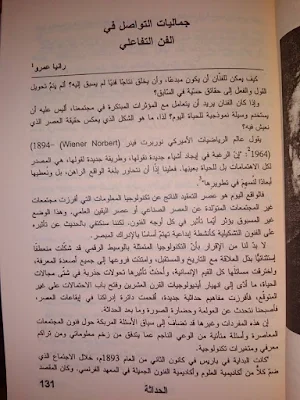 جماليات التواصل في
الفن التفاعلي
رانيا عمرو¹
كيف يمكن للفنان أن يكون مبدعًا، وأن يخلق نتاجًا فنيًا لم يسبق إليه؟ ألم يتم تحويل
اللون والفعل إلى حقائق حسّية في السابق؟
وإذا كان الفنان يريد أن يتعامل مع المؤثرات المبتكرة في مجتمعنا، أليس عليه أن
يستخدم وسيلة نموذجية للحياة اليوم؟ لذا، ما هو الشكل الذي يعكس حقيقة العصر الذي
نعيش فيه؟
يقول عالم الرياضيات الأميركي نوربرت فينر (Wiener Norbert) (1894-
1964): "إن الرغبة في إيجاد أشياء جديدة نقولها، وطريقة جديدة لقولها، هي المصدر
لكل الاهتمامات بل للحياة بعينها. فعلينا إذًا أن نتحاور بلغة الواقع الراهن، بل ونعطيها
أبعادًا تُسهم في تطويرها".
فالواقع اليوم هو عصر التعقيد الناتج عن تكنولوجيا المعلومات التي أفرزت مجتمعات
غير المجتمعات المتولدة عن العصر الصناعي أو عصر اليقين العلمي. وهذا الوضع
غير المسبوق يؤثر أيما تأثير في كل أوجه الفنون، لكننا سنكتفي بالحديث عن تأثيره
على الفنون التشكيلية كأنشطة إبداعية تهتم أساسًا بالإدراك البصر.
لا بدّ لنا من الإقرار بأنّ التكنولوجيا المتمثلة بالوسيط الرقمي قد شكّلت منعطفًا
إستثنائيًا بدّل العلاقة مع التاريخ والمستقبل، وامتدّت فروعها إلى جميع أصعدة المعرفة،
واخترقت مسالكها كل القيم الإنسانية، وأحدثت تأثيراتها تحولات جذرية في شتى مجالات
الحياة، ما أدّى إلى انهيار أيديولوجيات القرن العشرين وفتح باب الاحتمالات على غير
المتوقّع، فأفرزت مفاهيم حداثية جديدة، أقحمت دائرة إدراكنا في إيقاعات العصر،
فأصبحنا نتحدث عن العولمة وحضارة الصورة وما بعد الحداثة.
إن هذه المفردات وغيرها قد تضاف إلى سياق الأسئلة المربكة حول الفنون
المعاصرة وأسئلة متأتية من الوعي الناجم عما يتدفق من زخم معلوماتي ومن تراكم
معرفي ومتغيرات تكنولوجية.
"كانت البداية في باريس في كانون الثاني من العام 1893م، خلال الاجتماع الذي
ضمّ كلاً من أكاديمية العلوم وأكاديمية الفنون الجميلة في المعهد الفرنسي. وكان المقصد
131
الحداثة